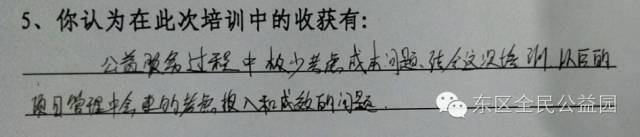 5、你认为在此次培训中的收获有:
公益服务过程中极少考虑成本问题.结合这次培训.以后的
项目管理中会更的考虑投入和成效的问题.
东区全民公益园